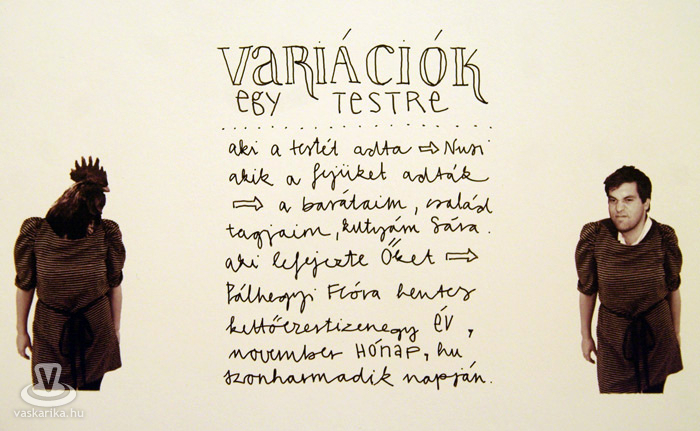 VARIÁCIÓK
egy TESTRE
aki a testét adta ⇨ Nusi
akik a fejüket adták
⇨ a barátaim, család
tagjaim, kutyám Sára.
aki lefejezte Őket ⇨
Pálhegyi Flóra hentes
kettőezertizenegy év,
november HÓNAP, hu
szonharmadik napján.
vaskarika.hu